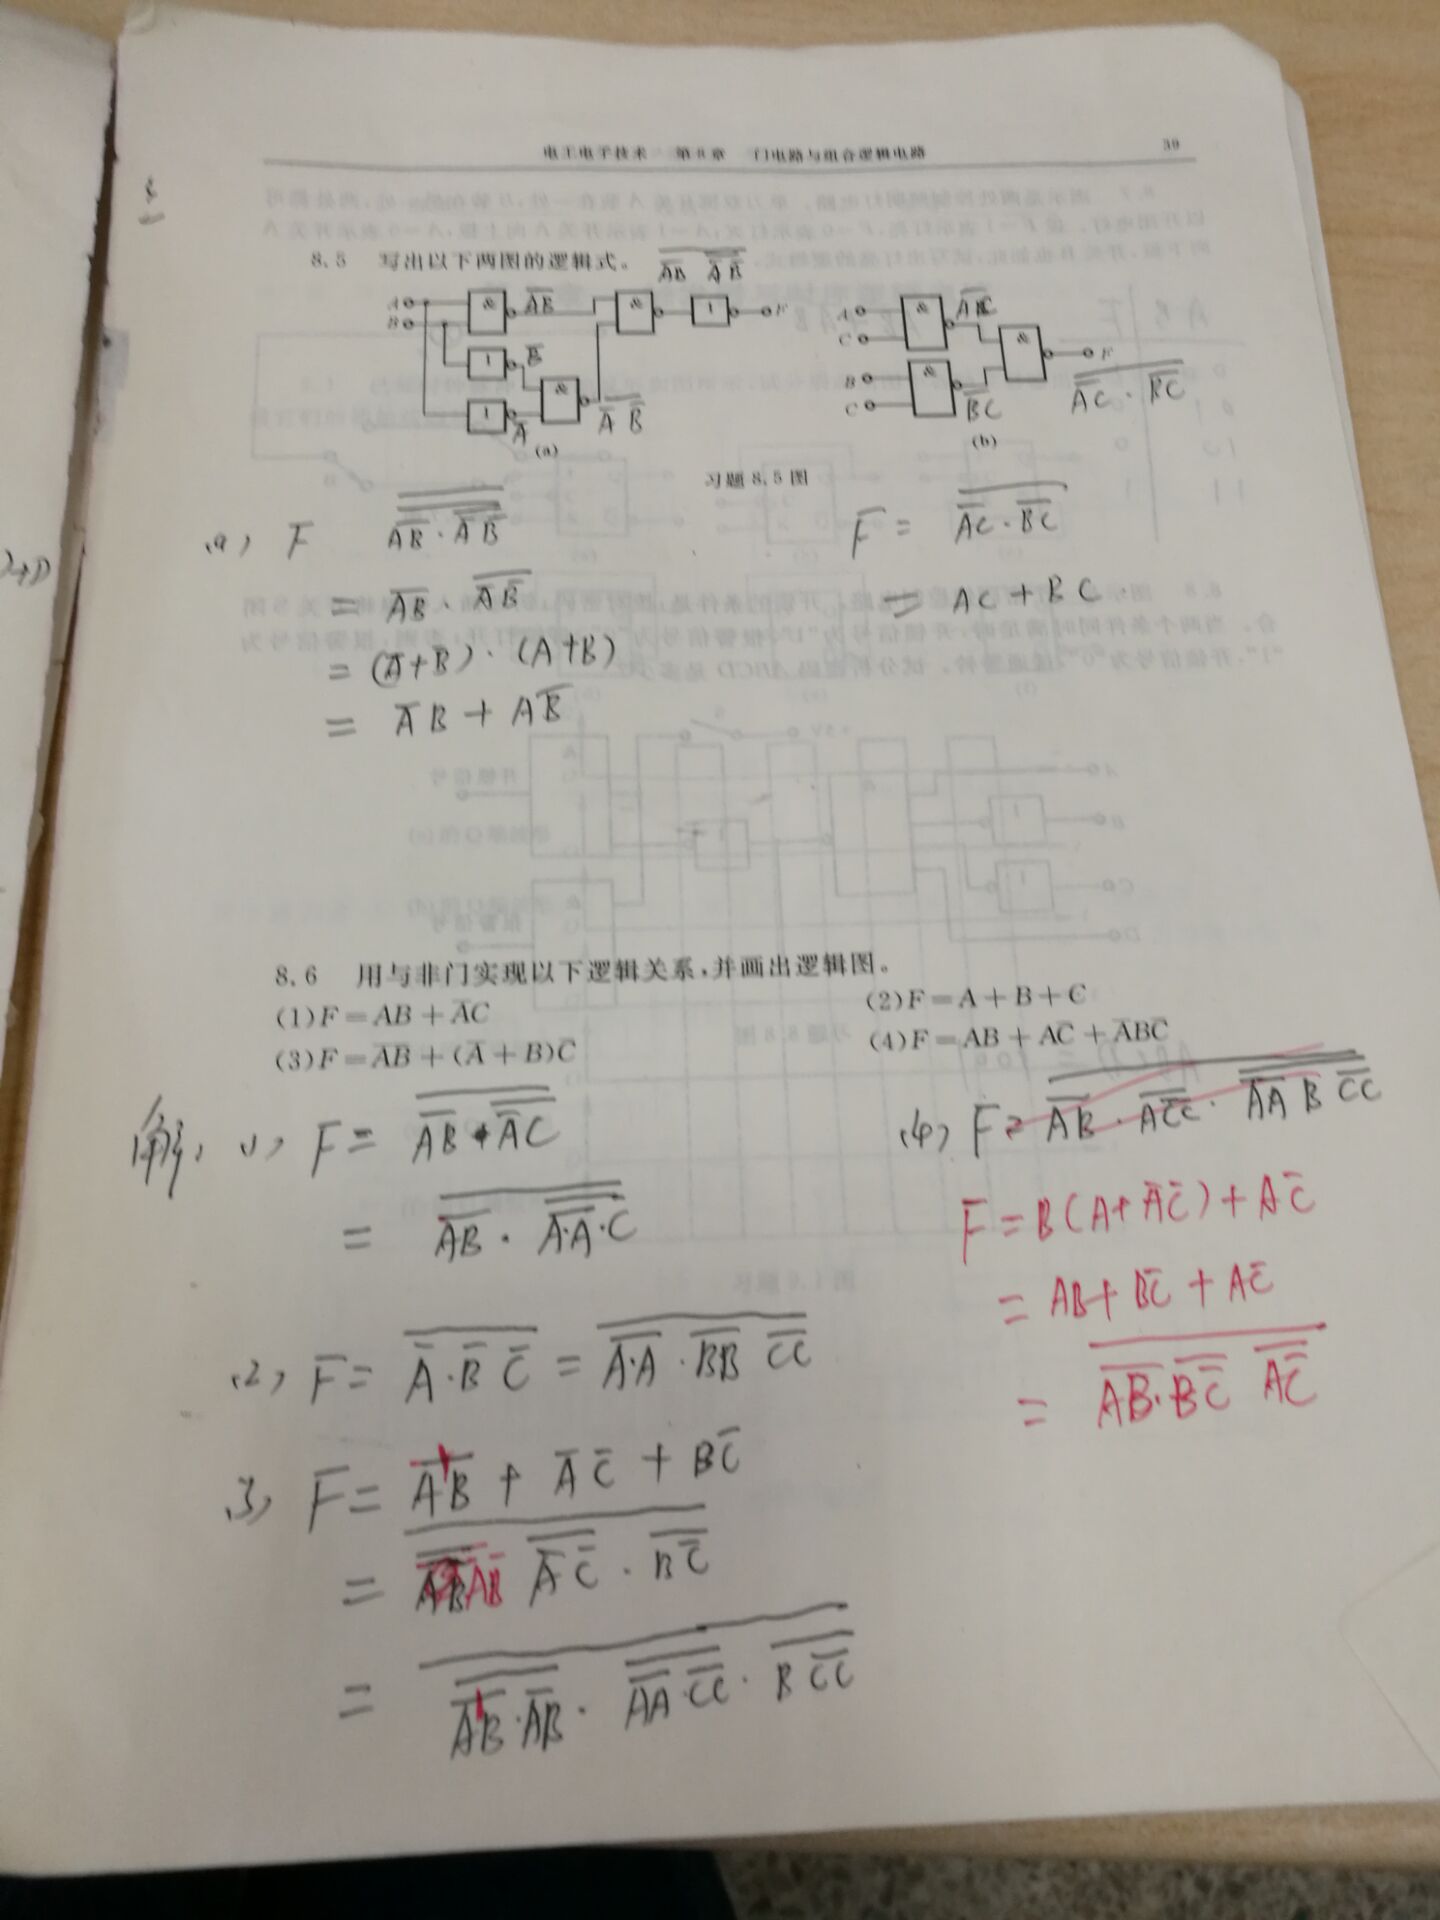 电工电子技术 第8章 门电路与组合逻辑电路 39
8.5 写出以下两图的逻辑式。
A B & 1 1 & & 1 F
A C B C & & & F
A̅B̅ B̅ A̅
(a)
(b)
习题8.5图
(a) F = A̅B̅ · A̅B̅
F = A̅C̅ · B̅C̅
= A̅B̅ · A̅B̅
= AC + BC
= (A̅+B̅)·(A+B)
= A̅B + AB̅
8.6 用与非门实现以下逻辑关系,并画出逻辑图。
(1)F=AB+A̅C
(2)F=A+B+C
(3)F=A̅B̅+(A̅+B)C̅
(4)F=AB+AC̅+A̅BC̅
解: (1) F = A̅B̅ · A̅C̅
= A̅B̅ · A̅·A̅·C
(2) F = A̅·B̅ C̅ = A·A · BB CC
(3) F = A̅B̅ + A̅C̅ + BC̅
= AB A̅C̅ · BC̅
= AB · AB · AA · CC · B CC
(4) F = AB · ACC · AA B CC
F = B(A+A̅C̅)+AC̅
= AB+BC̅+AC̅
= AB · BC̅ AC̅